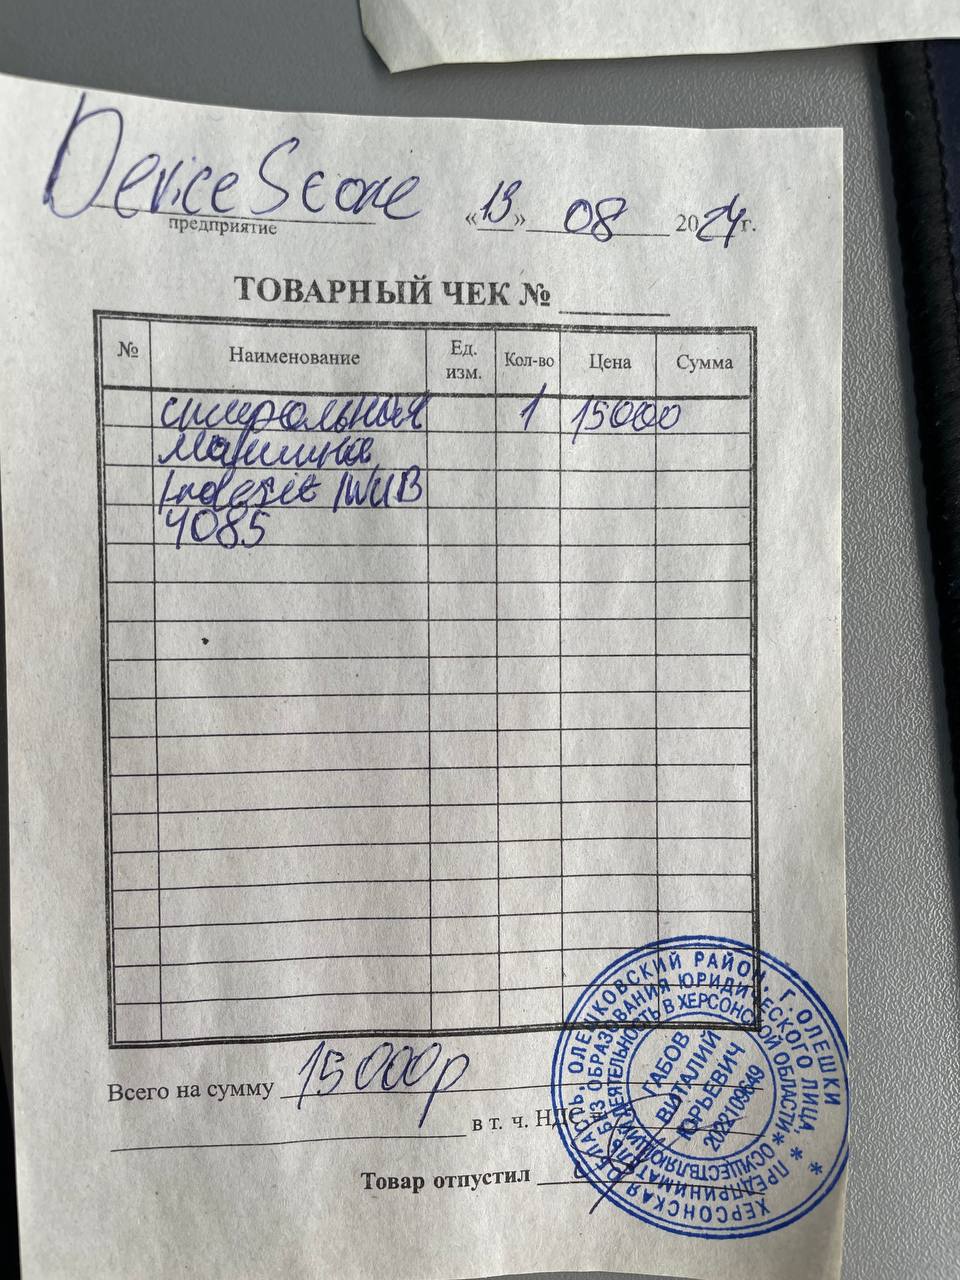 Device Score
предприятие
«13» 08 2024г.
ТОВАРНЫЙ ЧЕК №
№ Наименование Ед. изм. Кол-во Цена Сумма
стиральная 1 15000
машина
Indesit IWUB
4085
Всего на сумму 15 000р
в т. ч. НДС
Товар отпустил
ХЕРСОНСКАЯ ОБЛАСТЬ, ОЛЕШКОВСКИЙ РАЙОН, Г.ОЛЕШКИ
* ПРЕДПРИНИМАТЕЛЬ БЕЗ ОБРАЗОВАНИЯ ЮРИДИЧЕСКОГО ЛИЦА, *
ОСУЩЕСТВЛЯЮЩИЙ ДЕЯТЕЛЬНОСТЬ В ХЕРСОНСКОЙ ОБЛАСТИ*
ГАБОВ
ВИТАЛИЙ
ЮРЬЕВИЧ
2022109649